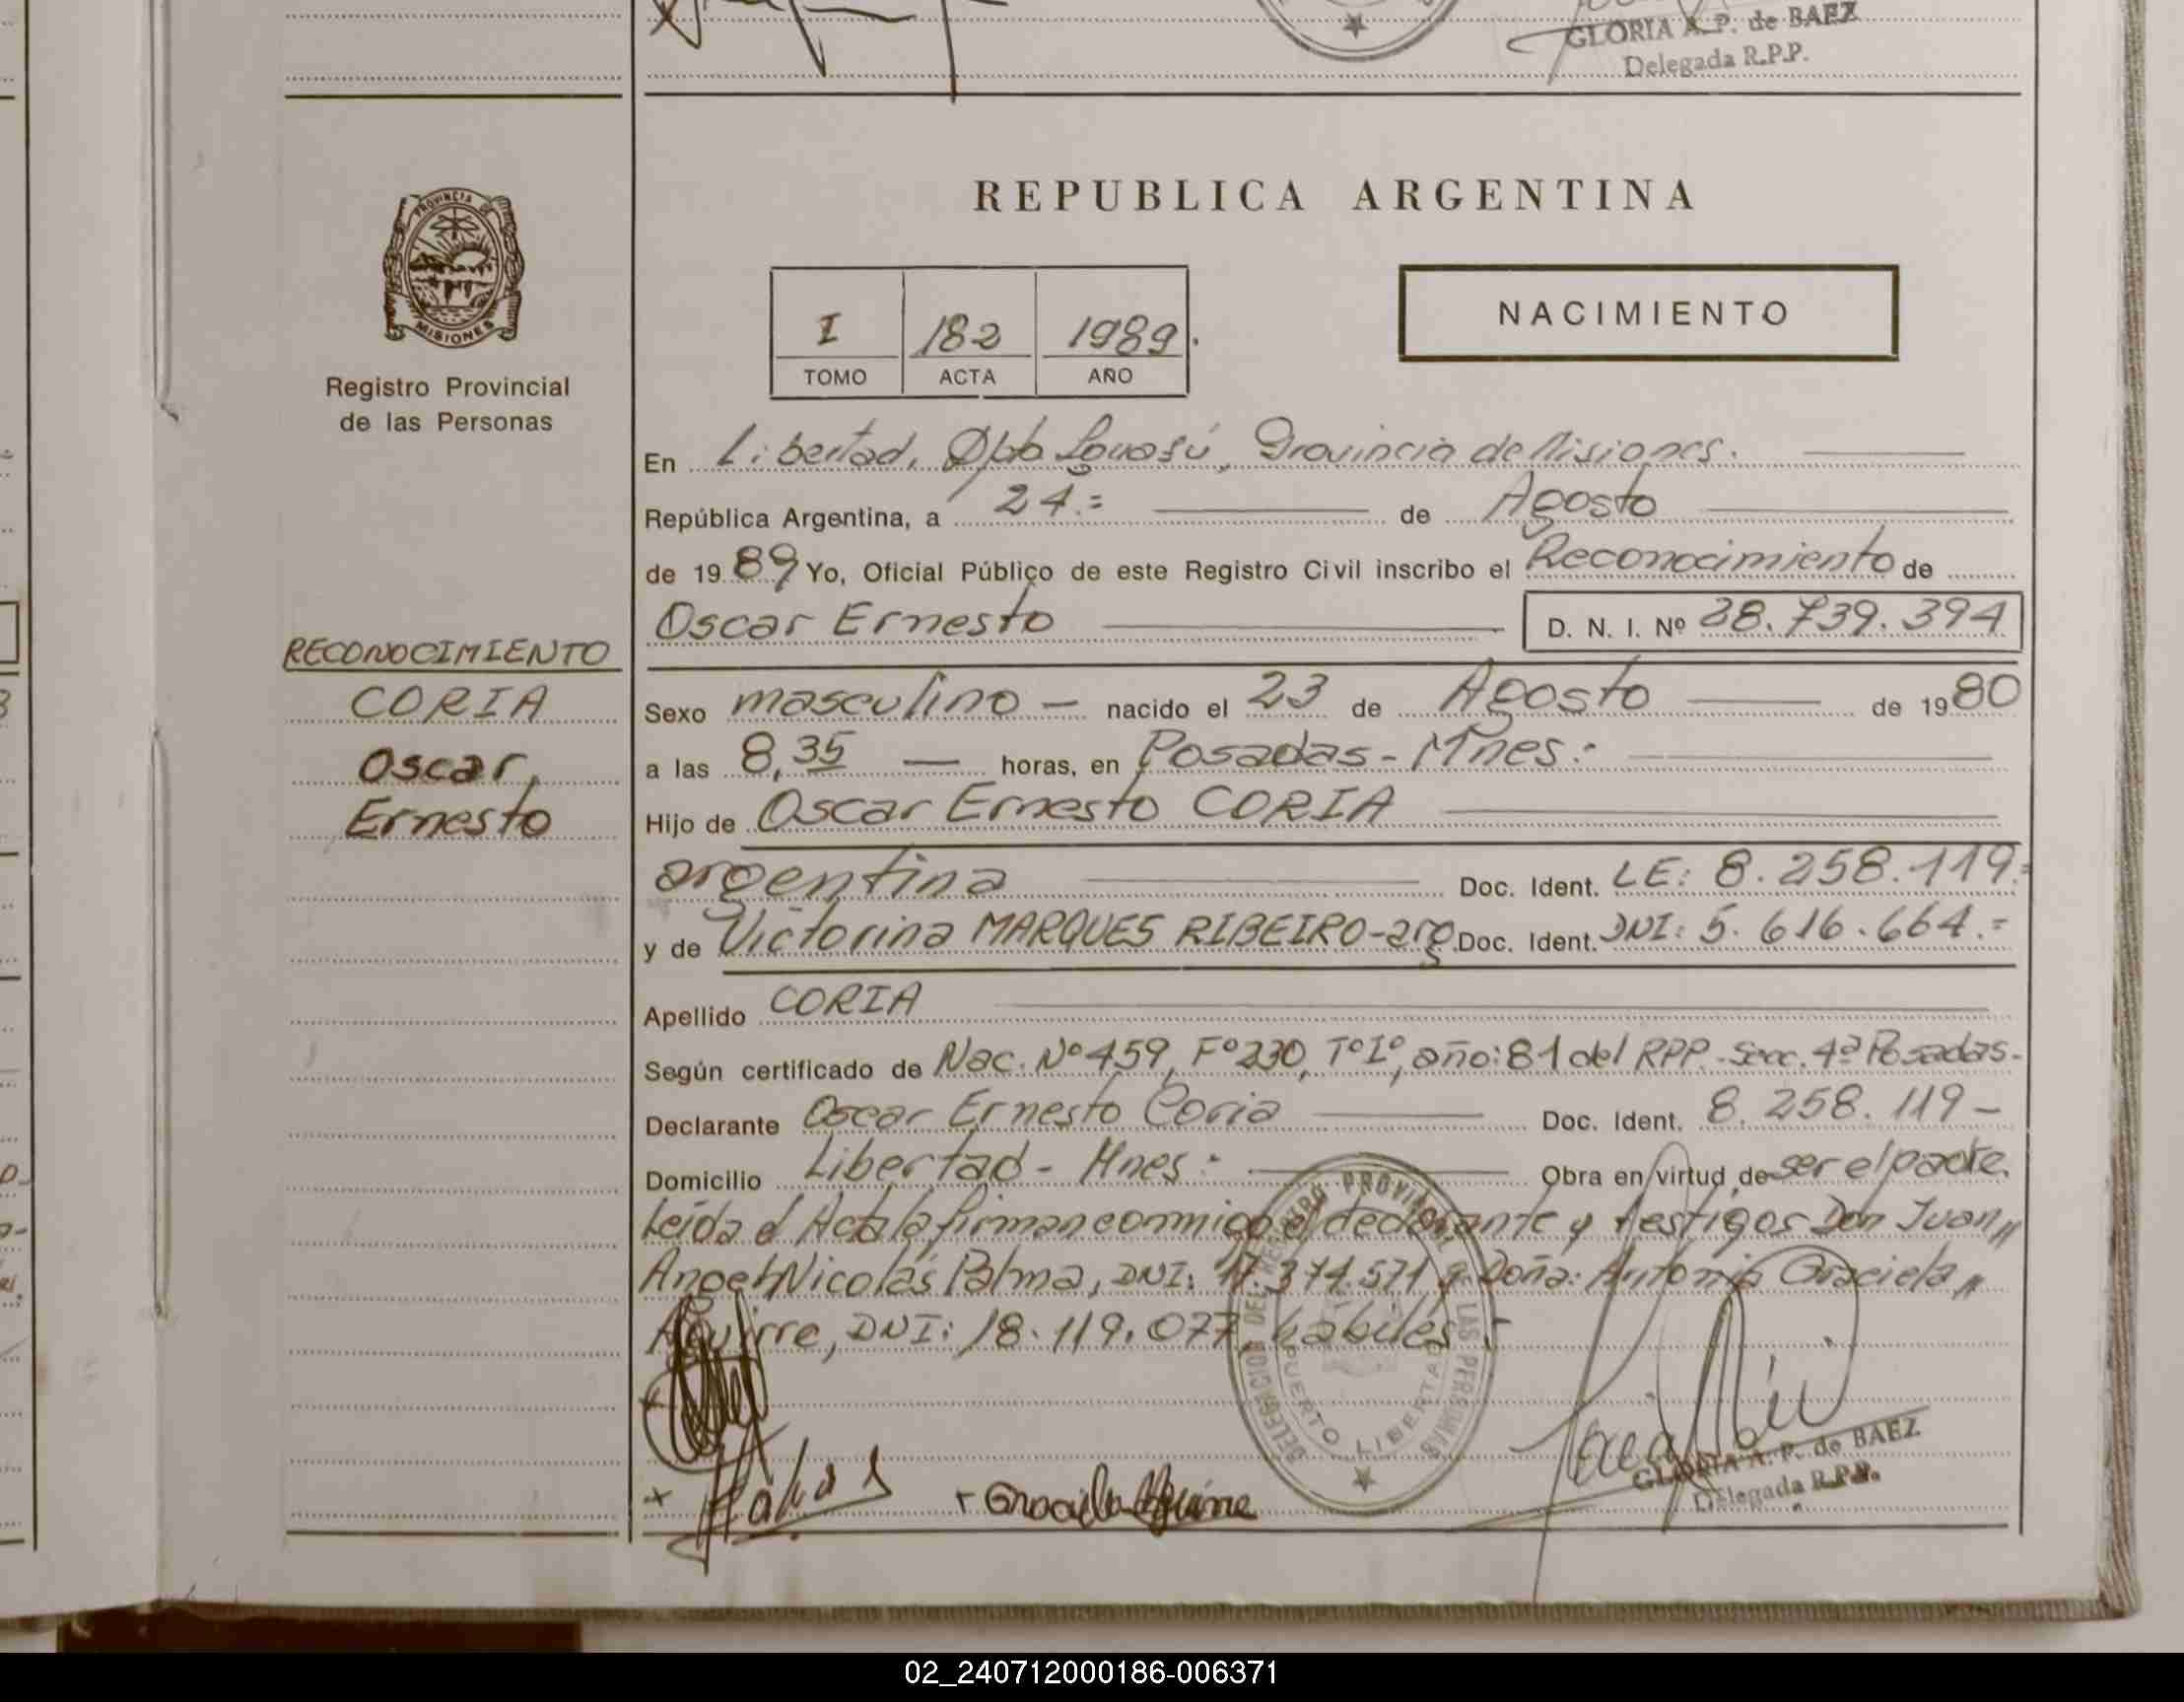 GLORIA A. P. de BAEZ
Delegada R.P.P.
PROVINCIA DE
MISIONES
Registro Provincial
de las Personas
REPUBLICA ARGENTINA
I 182 1989.
TOMO ACTA AÑO
NACIMIENTO
En Libertad, Dpto Iguasú, Provincia de Misiones.
República Argentina, a 24.= de Agosto
de 1989 Yo, Oficial Público de este Registro Civil inscribo el Reconocimiento de
Oscar Ernesto D. N. I. Nº 28.739.394
RECONOCIMIENTO
CORIA
Oscar,
Ernesto
Sexo masculino - nacido el 23 de Agosto de 1980
a las 8,35 - horas, en Posadas - Mnes:
Hijo de Oscar Ernesto CORIA
argentina Doc. Ident. LE: 8.258.119.=
y de Victorina MARQUES RIBEIRO-arg Doc. Ident. DNI: 5.616.664.=
Apellido CORIA
Según certificado de Nac. Nº 459, Fº 230, Tº Iº, año: 81 del RPP. Secc. 4ª Posadas-
Declarante Oscar Ernesto Coria Doc. Ident. 8.258.119-
Domicilio Libertad - Mnes: Obra en virtud de ser el padre.
Leída el Acta la firman conmigo el declarante y testigos Don Juan
Angel Nicolás Palma, DNI: 17.374.571 y Doña: Antonia Graciela
Aguirre, DNI: 18.119.077, habiles
DELEGACION DEL REGISTRO PROVINCIAL DE LAS PERSONAS
PUERTO LIBERTAD
+ Graciela Aguirre
GLORIA A. P. de BAEZ
Delegada R.P.P.
02_240712000186-006371